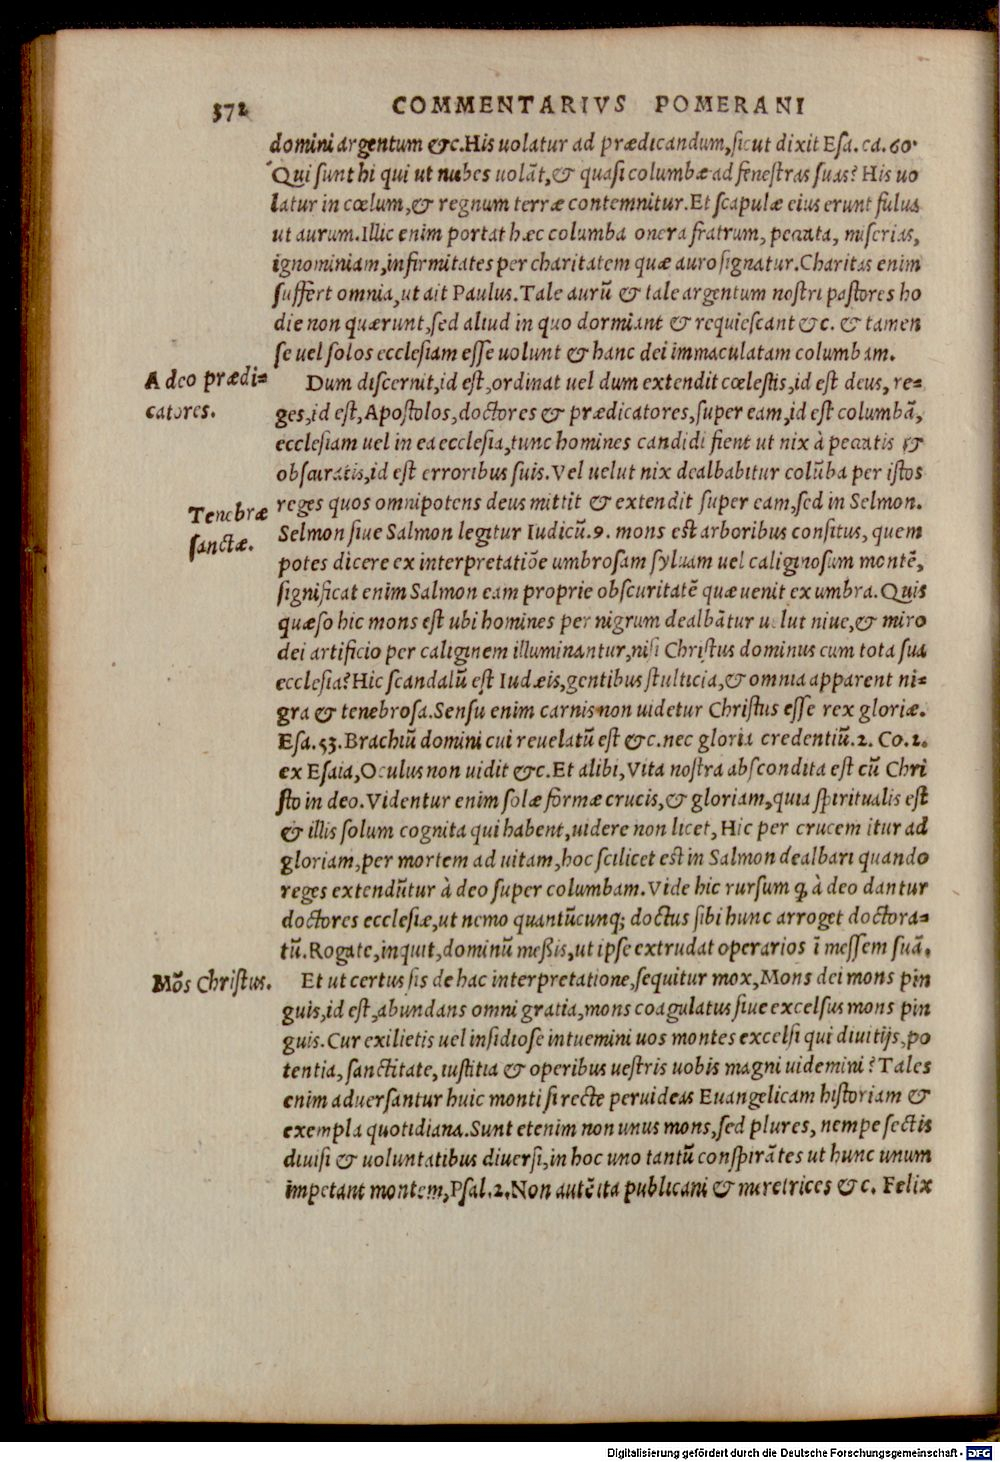 372 COMMENTARIVS POMERANI
domini argentum &c. His uolatur ad prædicandum, sicut dixit Esa. ca. 60.
Qui sunt hi qui ut nubes uolāt, & quasi columbæ ad fenestras suas? His uo
latur in cœlum, & regnum terræ contemnitur. Et scapulæ eius erunt fuluæ
ut aurum. Illic enim portat hæc columba onera fratrum, peccata, miserias,
ignominiam, infirmitates per charitatem quæ auro signatur. Charitas enim
suffert omnia, ut ait Paulus. Tale aurū & tale argentum nostri pastores ho
die non quærunt, sed aliud in quo dormiant & requiescant &c. & tamen
se uel solos ecclesiam esse uolunt & hanc dei immaculatam columbam.
A deo prædi=
catores.
Dum discernit, id est, ordinat uel dum extendit cœlestis, id est deus, re=
ges, id est, Apostolos, doctores & prædicatores, super eam, id est columbā,
ecclesiam uel in ea ecclesia, tunc homines candidi fient ut nix à peccatis &
obscuratis, id est erroribus suis. Vel uelut nix dealbabitur colūba per istos
reges quos omnipotens deus mittit & extendit super eam, sed in Selmon.
Tenebræ
sanctæ.
Selmon siue Salmon legitur Iudicū. 9. mons est arboribus consitus, quem
potes dicere ex interpretatiōe umbrosam syluam uel caliginosum montē,
significat enim Salmon eam proprie obscuritatē quæ uenit ex umbra. Quis
quæso hic mons est ubi homines per nigrum dealbātur uelut niue, & miro
dei artificio per caliginem illuminantur, nisi Christus dominus cum tota sua
ecclesia? Hic scandalū est Iudæis, gentibus stulticia, & omnia apparent ni=
gra & tenebrosa. Sensu enim carnis non uidetur Christus esse rex gloriæ.
Esa. 53. Brachiū domini cui reuelatū est &c. nec gloria credentiū. 2. Co. 2.
ex Esaia, Oculus non uidit &c. Et alibi, Vita nostra abscondita est cū Chri
sto in deo. Videntur enim solæ formæ crucis, & gloriam, quia spiritualis est
& illis solum cognita qui habent, uidere non licet, Hic per crucem itur ad
gloriam, per mortem ad uitam, hoc scilicet est in Salmon dealbari quando
reges extendūtur à deo super columbam. Vide hic rursum ꝙ à deo dantur
doctores ecclesiæ, ut nemo quantūcunq; doctus sibi hunc arroget doctora=
tū. Rogate, inquit, dominū meßis, ut ipse extrudat operarios ī messem suā.
Mōs Christus.
Et ut certus sis de hac interpretatione, sequitur mox, Mons dei mons pin
guis, id est, abundans omni gratia, mons coagulatus siue excelsus mons pin
guis. Cur exilietis uel insidiose intuemini uos montes excelsi qui diuitijs, po
tentia, sanctitate, iustitia & operibus uestris uobis magni uidemini? Tales
enim aduersantur huic monti si recte peruideas Euangelicam historiam &
exempla quotidiana. Sunt etenim non unus mons, sed plures, nempe sectis
diuisi & uoluntatibus diuersi, in hoc uno tantū conspirātes ut hunc unum
impetant montem, Psal. 2. Non autē ita publicani & meretrices &c. Felix
Digitalisierung gefördert durch die Deutsche Forschungsgemeinschaft - DFG